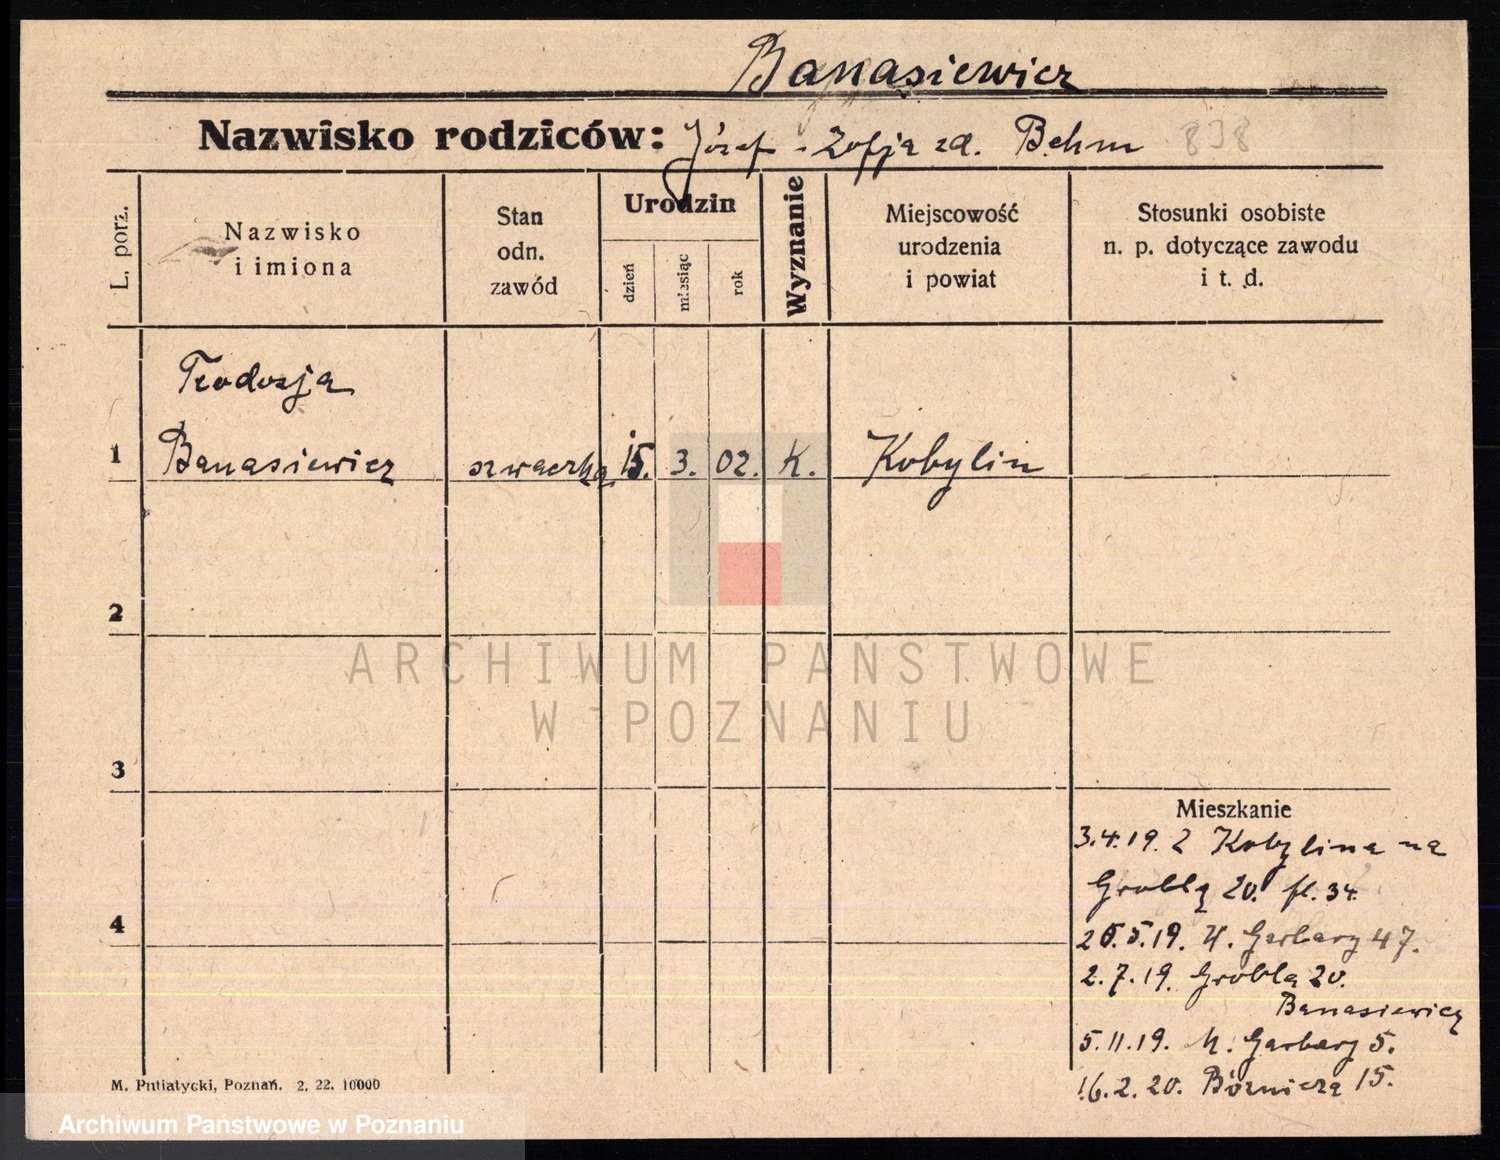 Banasiewicz
Nazwisko rodziców: Józef - Zofja zd. Behm 838
L. porz.
Nazwisko
i imiona
Stan
odn.
zawód
Urodzin
dzień
miesiąc
rok
Wyznanie
Miejscowość
urodzenia
i powiat
Stosunki osobiste
n. p. dotyczące zawodu
i t. d.
Teodozja
1 Banasiewicz szwaczka 15. 3. 02. K. Kobylin
2
ARCHIWUM PAŃSTWOWE
W POZNANIU
3
Mieszkanie
3.4.19. z Kobylina na
Groblą 20. fl. 34.
4
5.19. Garbary 47.
2.7.19. Grobla 20.
Banasiewicz
5.11.19. M. Garbary 5.
16.2.20. Bóźnicza 15.
M. Putiatycki, Poznań. 2. 22. 10000
Archiwum Państwowe w Poznaniu